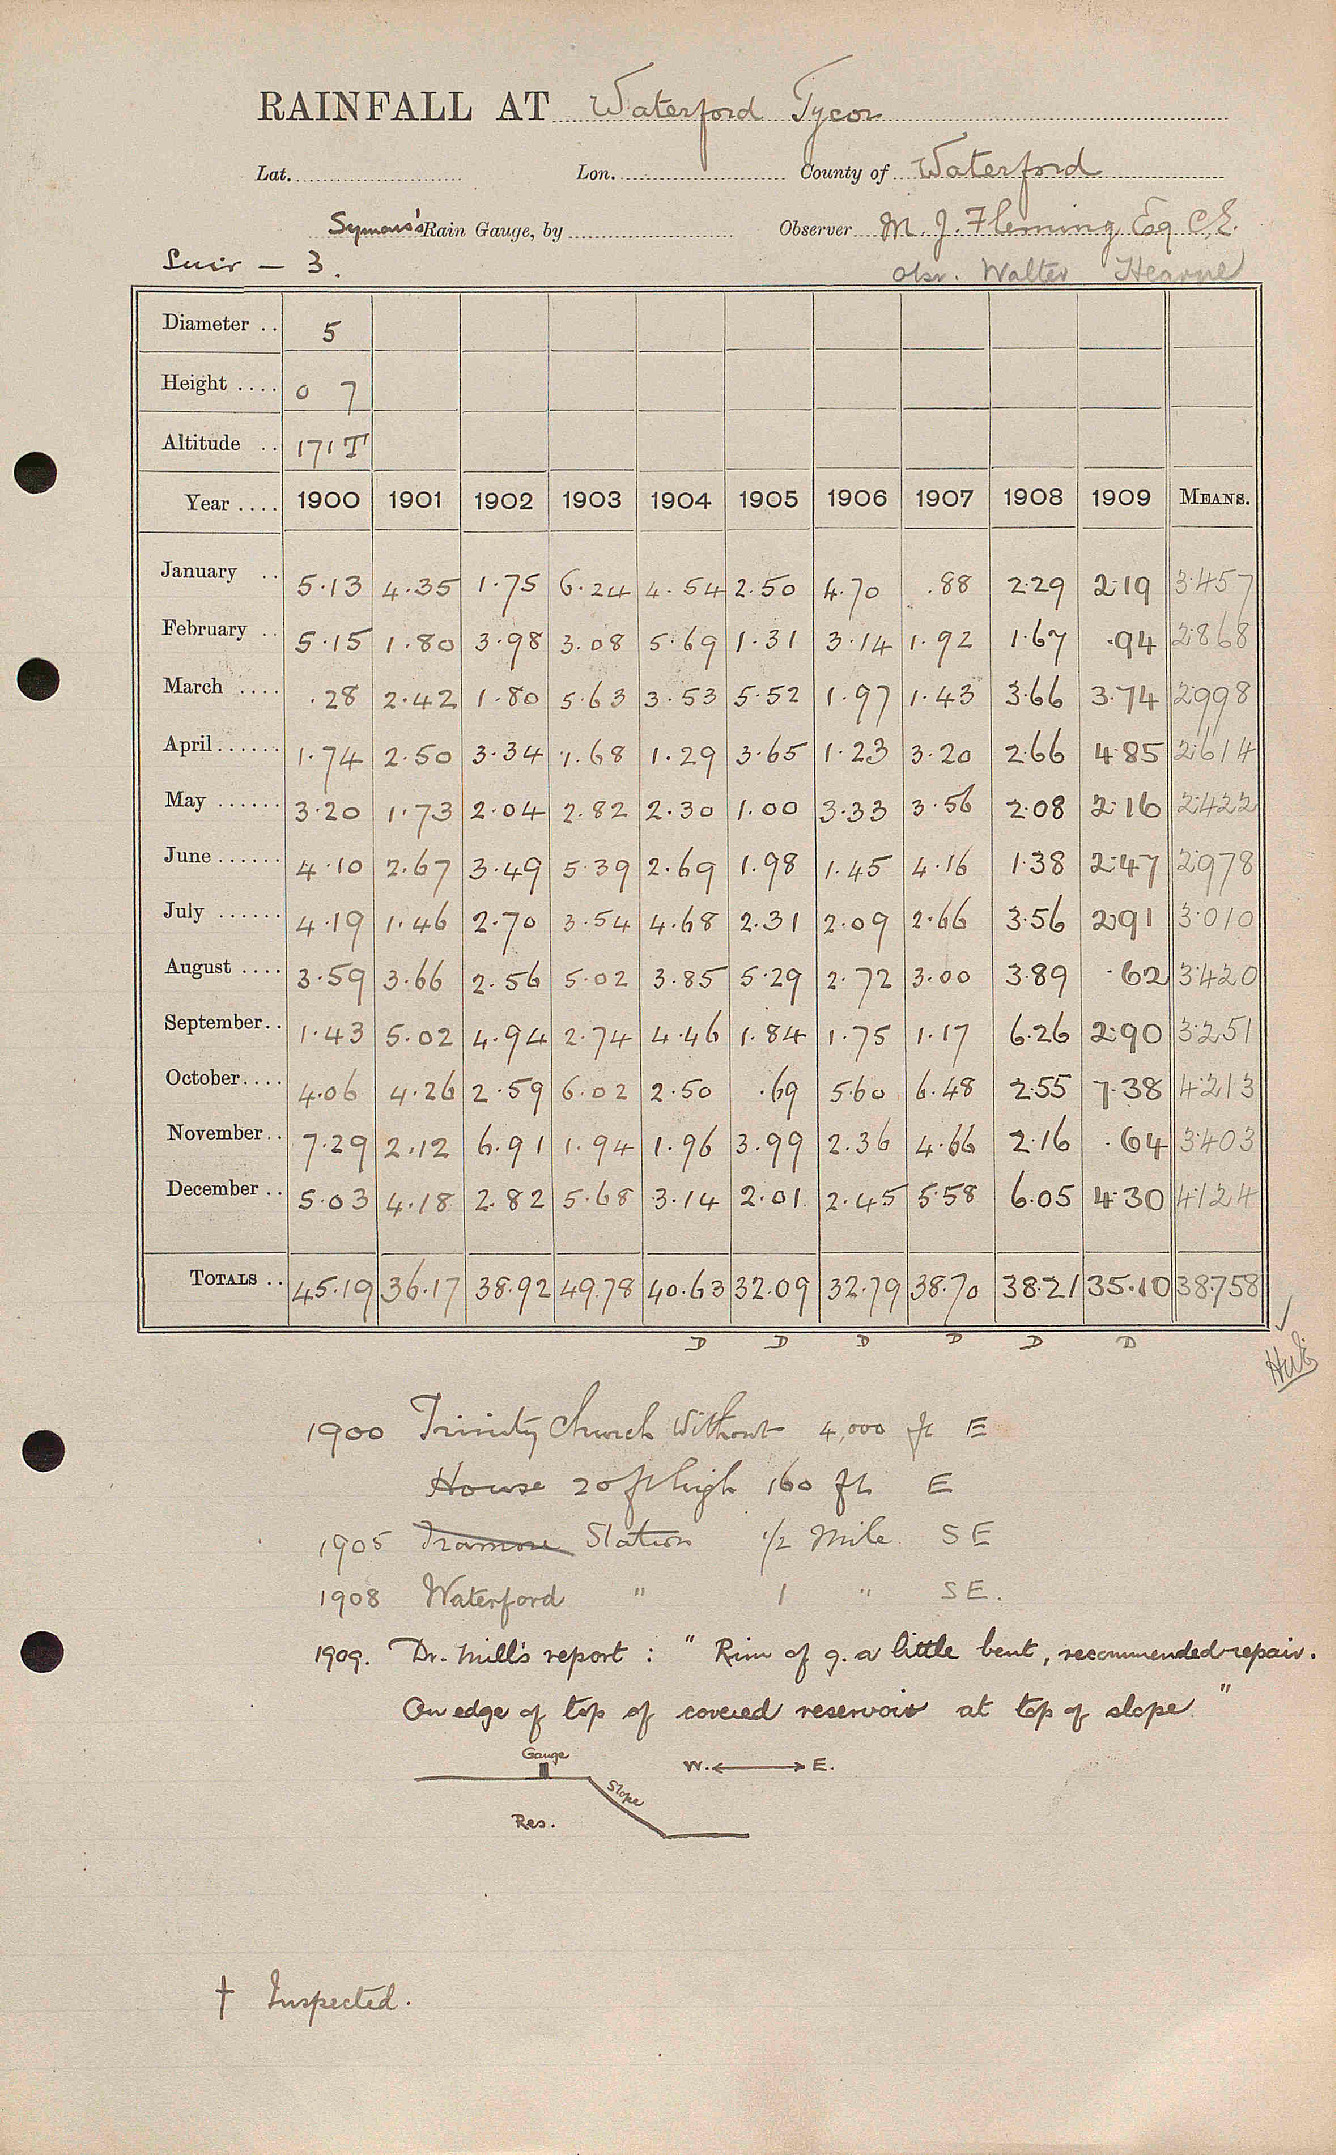 RAINFALL AT Waterford Tycor
Lat. Lon. County of Waterford
Symons's Rain Gauge, by Observer M. J. Fleming Esq C.E.
Suir – 3. Obsr. Walter Hearne
Diameter .. 5
Height .... 0 7
Altitude .. 171 T
Year .... 1900 1901 1902 1903 1904 1905 1906 1907 1908 1909 MEANS.
January .. 5.13 4.35 1.75 6.24 4.54 2.50 4.70 .88 2.29 2.19 3.457
February .. 5.15 1.80 3.98 3.08 5.69 1.31 3.14 1.92 1.67 .94 2.868
March .... .28 2.42 1.80 5.63 3.53 5.52 1.97 1.43 3.66 3.74 2.998
April ...... 1.74 2.50 3.34 1.68 1.29 3.65 1.23 3.20 2.66 4.85 2.614
May ...... 3.20 1.73 2.04 2.82 2.30 1.00 3.33 3.56 2.08 2.16 2.422
June ...... 4.10 2.67 3.49 5.39 2.69 1.98 1.45 4.16 1.38 2.47 2.978
July ...... 4.19 1.46 2.70 3.54 4.68 2.31 2.09 2.66 3.56 2.91 3.010
August .... 3.59 3.66 2.56 5.02 3.85 5.29 2.72 3.00 3.89 .62 3.420
September .. 1.43 5.02 4.94 2.74 4.46 1.84 1.75 1.17 6.26 2.90 3.251
October .... 4.06 4.26 2.59 6.02 2.50 .69 5.60 6.48 2.55 7.38 4.213
November .. 7.29 2.12 6.91 1.94 1.96 3.99 2.36 4.66 2.16 .64 3.403
December .. 5.03 4.18 2.82 5.68 3.14 2.01 2.45 5.58 6.05 4.30 4.124
TOTALS .. 45.19 36.17 38.92 49.78 40.63 32.09 32.79 38.70 38.21 35.10 38.758
D D D D D D
1900 Trinity Church Without 4,000 ft E
House 20 ft high 160 ft E
1905 Tramore Station 1/2 Mile SE
1908 Waterford " 1 " SE.
1909. Dr. Mill's report : " Rim of g. a little bent, recommended repair.
On edge of top of covered reservoir at top of slope "
Gauge W. ⟵⟶ E.
Slope
Res.
† Inspected.